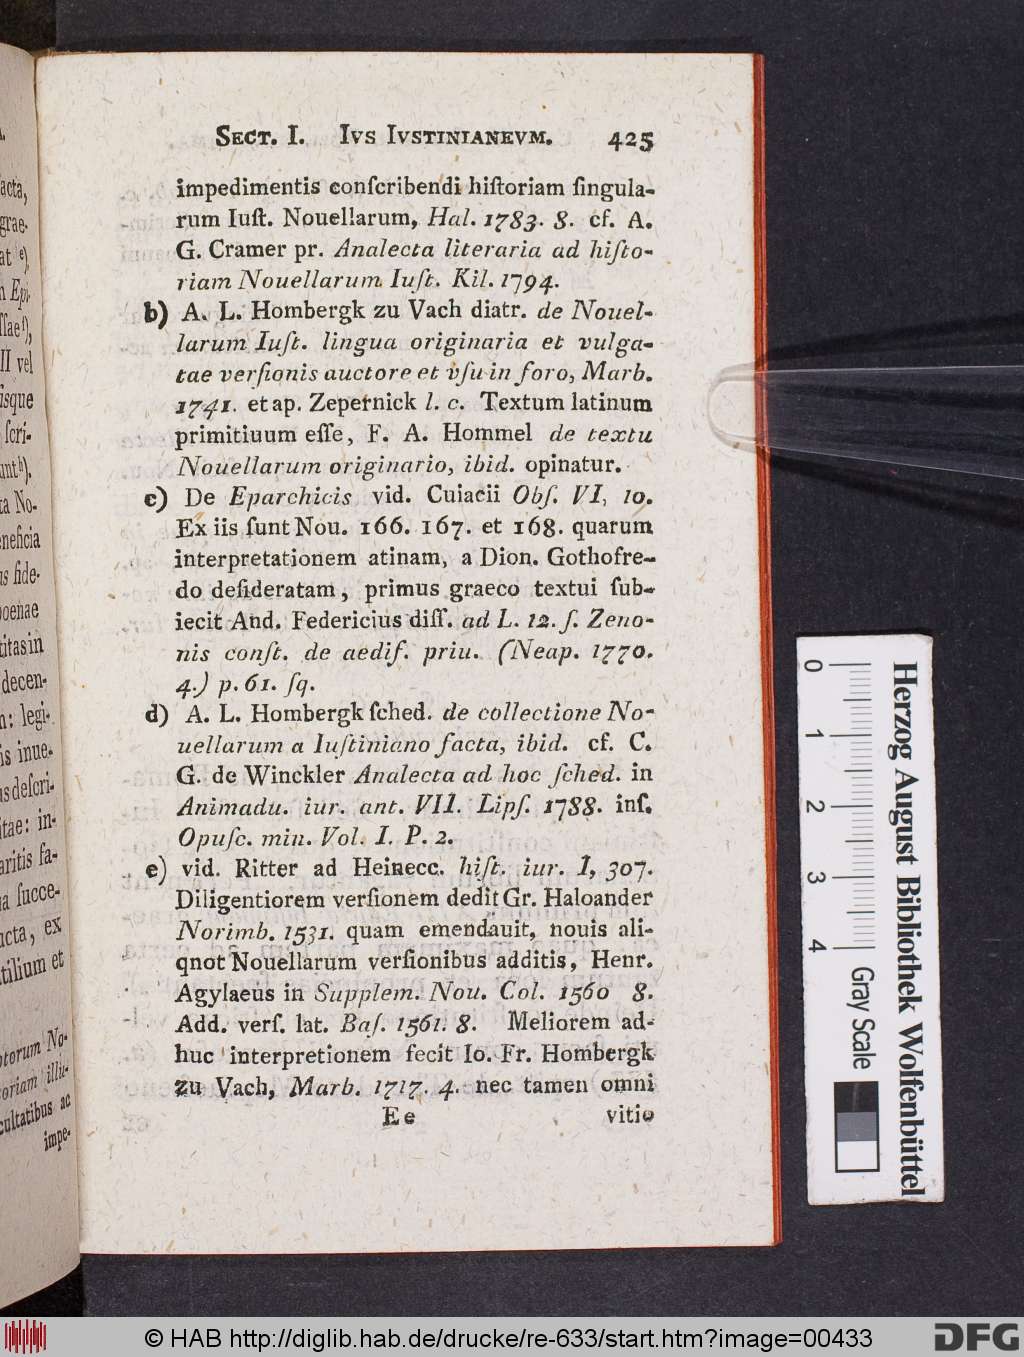 SECT. I. IVS IVSTINIANEVM. 425
impedimentis conſcribendi hiſtoriam ſingula-
rum Iuſt. Nouellarum, Hal. 1783. 8. cf. A.
G. Cramer pr. Analecta literaria ad hiſto-
riam Nouellarum Iuſt. Kil. 1794.
b) A. L. Hombergk zu Vach diatr. de Nouel-
larum Iuſt. lingua originaria et vulga-
tae verſionis auctore et vſu in foro, Marb.
1741. et ap. Zepernick l. c. Textum latinum
primitiuum eſſe, F. A. Hommel de textu
Nouellarum originario, ibid. opinatur.
c) De Eparchicis vid. Cuiacii Obſ. VI, 10.
Ex iis ſunt Nou. 166. 167. et 168. quarum
interpretationem atinam, a Dion. Gothofre-
do deſideratam, primus graeco textui ſub-
iecit And. Federicius diſſ. ad L. 12. ſ. Zeno-
nis conſt. de aedif. priu. (Neap. 1770.
4.) p. 61. ſq.
d) A. L. Hombergk ſched. de collectione No-
uellarum a Iuſtiniano facta, ibid. cf. C.
G. de Winckler Analecta ad hoc ſched. in
Animadu. iur. ant. VII. Lipſ. 1788. inſ.
Opuſc. min. Vol. I. P. 2.
e) vid. Ritter ad Heinecc. hiſt. iur. I, 307.
Diligentiorem verſionem dedit Gr. Haloander
Norimb. 1531. quam emendauit, nouis ali-
qnot Nouellarum verſionibus additis, Henr.
Agylaeus in Supplem. Nou. Col. 1560 8.
Add. verſ. lat. Baſ. 1561. 8. Meliorem ad-
huc interpretionem fecit Io. Fr. Hombergk
zu Vach, Marb. 1717. 4. nec tamen omni
Ee vitio
acta,
grae-
at e),
n Epi-
ſſae f),
II vel
iſque
ſcri-
unt h).
ta No-
eneficia
us fide-
poenae
titas in
decen-
n: legi-
is inue-
us deſcri-
itae: in-
aritis fa-
a ſucce-
ucta, ex
tilium et
ptorum No-
toriam illu-
cultatibus ac
impe-
0 1 2 3 4
Gray Scale
Herzog August Bibliothek Wolfenbüttel
© HAB http://diglib.hab.de/drucke/re-633/start.htm?image=00433
DFG